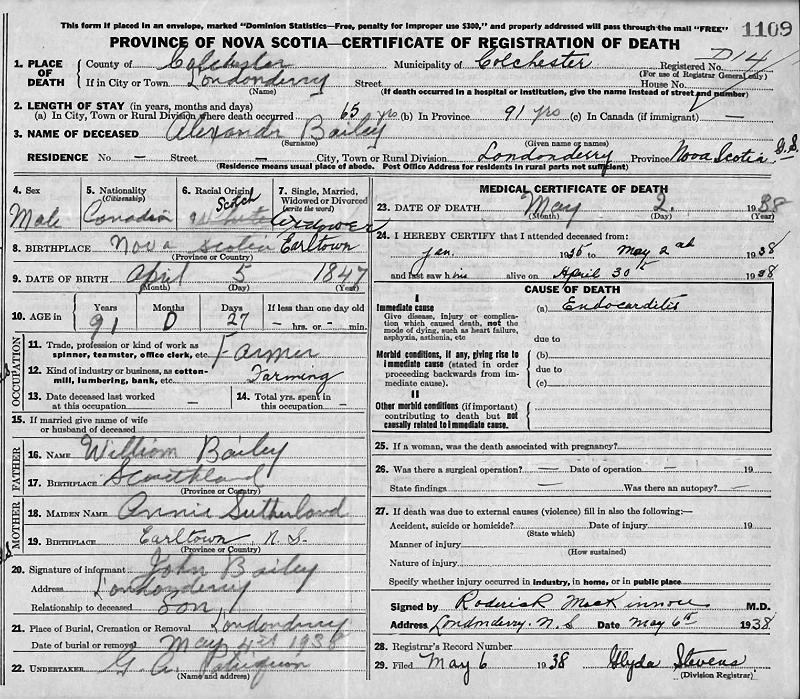 This form if placed in an envelope, marked "Dominion Statistics—Free, penalty for improper use $300," and properly addressed will pass through the mail "FREE"
1109
PROVINCE OF NOVA SCOTIA—CERTIFICATE OF REGISTRATION OF DEATH
1. PLACE OF DEATH County of Colchester Municipality of Colchester Registered No. 14
(For use of Registrar General only)
If in City or Town Londonderry Street House No.
(Name) (If death occurred in a hospital or institution, give the name instead of street and number)
2. LENGTH OF STAY (in years, months and days)
(a) In City, Town or Rural Division where death occurred 65 yrs (b) In Province 91 yrs (c) In Canada (if immigrant) —
3. NAME OF DECEASED Alexander Bailey
(Surname) (Given name or names)
RESIDENCE No. — Street — City, Town or Rural Division Londonderry Province Nova Scotia
(Residence means usual place of abode. Post Office Address for residents in rural parts not sufficient)
4. Sex Male
5. Nationality (Citizenship) Canadian
6. Racial Origin Scotch White
7. Single, Married, Widowed or Divorced (write the word) Widower
8. BIRTHPLACE Nova Scotia Earltown
(Province or Country)
9. DATE OF BIRTH April 5 1847
(Month) (Day) (Year)
10. AGE in Years Months Days If less than one day old
91 0 27 — hrs. or — min.
OCCUPATION
11. Trade, profession or kind of work as spinner, teamster, office clerk, etc. Farmer
12. Kind of industry or business, as cotton-mill, lumbering, bank, etc. Farming
13. Date deceased last worked at this occupation —
14. Total yrs. spent in this occupation —
15. If married give name of wife or husband of deceased
FATHER
16. NAME William Bailey
17. BIRTHPLACE Scouthland
(Province or Country)
MOTHER
18. MAIDEN NAME Annie Sutherland
19. BIRTHPLACE Earltown, N.S.
(Province or Country)
20. Signature of informant John Bailey
Address Londonderry
Relationship to deceased Son
21. Place of Burial, Cremation or Removal Londonderry
Date of burial or removal May 4st 1938
22. UNDERTAKER G. A.
(Name and address)
MEDICAL CERTIFICATE OF DEATH
23. DATE OF DEATH May 2. 1938
(Month) (Day) (Year)
24. I HEREBY CERTIFY that I attended deceased from:
Jan. 1935 to May 2nd 1938
and last saw him alive on April 30th 1938
CAUSE OF DEATH
I
Immediate cause (a) Endocarditis
Give disease, injury or complication which caused death, not the mode of dying, such as heart failure, asphyxia, asthenia, etc
due to
Morbid conditions, if any, giving rise to immediate cause (stated in order proceeding backwards from immediate cause).
(b)
due to
(c)
II
Other morbid conditions (if important) contributing to death but not causally related to immediate cause.
25. If a woman, was the death associated with pregnancy?
26. Was there a surgical operation? — Date of operation — 19
State findings — Was there an autopsy? —
27. If death was due to external causes (violence) fill in also the following:—
Accident, suicide or homicide? Date of injury 19
(State which)
Manner of injury
(How sustained)
Nature of injury
Specify whether injury occurred in industry, in home, or in public place
Signed by Roderick MacKinnon M.D.
Address Londonderry. N.S Date May 6th 1938
28. Registrar's Record Number
29. Filed May 6 1938 Glyda Stevens
(Division Registrar)